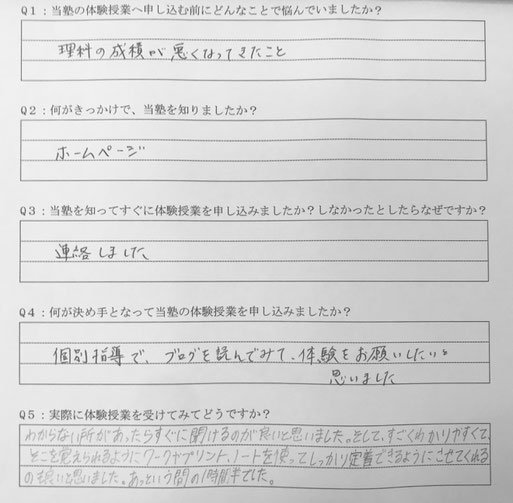 Q1：当塾の体験授業へ申し込む前にどんなことで悩んでいましたか？
理科の成積が悪くなってきたこと
Q2：何がきっかけで、当塾を知りましたか？
ホームページ
Q3：当塾を知ってすぐに体験授業を申し込みましたか？しなかったとしたらなぜですか？
連絡しました、
Q4：何が決め手となって当塾の体験授業を申し込みましたか？
個別指導で、ブログを読んでみて、体験をお願いしたいと
思いました
Q5：実際に体験授業を受けてみてどうですか？
わからない所があったらすぐに聞けるのが良いと思いました。そして、すごくわかりやすくて、
そこを覚えられるようにワークやプリント、ノートを使ってしっかり定着できるようにさせてくれる
のも良いと思いました。あっという間の1時間半でした。